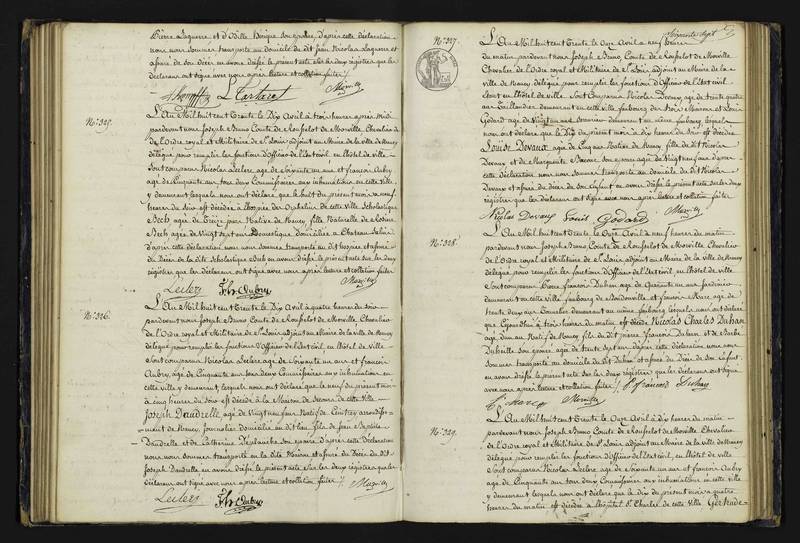 Pierre Laguerre et d'Odille Bonique son épouse, d'après cette déclaration
nous nous sommes transporté au domicile du dit feu Nicolas Laguerre et
assuré de son décès en avons dressé le présent acte sur les deux registres que les
déclarants ont signé avec nous après lecture et collation faites /.
L Tartaret
N°. 325.
L'An Mil huit cent Trente le Dix Avril à trois heures après Midi
pardevant nous Joseph Bruno Comte de Rouffelot de Morville, Chevalier de
de l'Ordre royal et Militaire de St Louis adjoint au Maire de la ville de Nancy
délégué pour remplir les fonctions d'Officier de l'état civil, en l'hôtel de ville
sont comparus Nicolas Leclerc agé de Soixante un ans et françois Aubry
agé de Cinquante ans tous deux Commissionnaires aux inhumations en cette ville
y demeurant lesquels nous ont déclaré que le huit du présent mois à neuf
heures du soir est décédée à l'hospice des Orphelins de cette ville Scholastique
Bech, agée de Treize jours Native de Nancy, fille Naturelle de Rosine
Bech agée de Vingt sept ans Domestique domiciliée à Chateau Salins
d'après cette déclaration nous nous sommes transporté au dit hospice et assuré
du Décès de la dite Scholastique Bech en avons dressé le présent acte sur les deux
registres que les déclarants ont signé avec nous après lecture et collation faites
Leclerc Fçois Aubry
N°. 326.
L'An Mil huit cent Trente le Dix Avril à quatre heures du soir
pardevant nous Joseph Bruno Comte de Rouffelot de Morville, Chevalier
de l'Ordre royal et Militaire de St Louis adjoint au Maire de la ville de Nancy
délégué pour remplir les fonctions d'Officier de l'état civil, en l'hôtel de ville
sont comparus Nicolas Leclerc agé de Soixante un ans et françois
Aubry, agé de Cinquante ans tous deux Commissionnaires aux inhumations en
cette ville y demeurant, lesquels nous ont déclaré que le neuf du présent mois
à cinq heures du soir est décédé à la Maison de Secours de cette ville
Joseph Daudrelle agé de Vingt neuf ans Natif de Ceintrey arrondisse-
-ment de Nancy, journalier domicilié au dit lieu fils de Jean Baptiste
Daudrelle et de Catherine Deplanche son épouse d'après cette Déclaration
nous nous sommes transporté en la dite Maison et assuré du Décès du dit
Joseph Daudrelle en avons dressé le présent acte sur les deux registres que les
déclarants ont signé avec nous après lecture et collation faites /.
Leclerc Fçois Aubry
Cinquante sept
N°. 327.
L'An Mil huit cent Trente le Onze Avril à neuf heures
du matin, pardevant nous Joseph Bruno Comte de Rouffelot de Morville
Chevalier de l'Ordre royal et Militaire de St Louis, adjoint au Maire de la
ville de Nancy délégué pour remplir les fonctions d'Officier de l'état civil
en l'hôtel de ville sont Comparus Nicolas Devaux agé de trente quatre
ans Taillandier demeurant en cette ville, faubourg des trois Maisons et Louis
Godard agé de Vingt un ans demeurant au même faubourg lesquels
nous ont déclaré que le Dix du présent mois à dix heures du soir est décédée
Louise Devaux agée de Cinq ans Native de Nancy fille du dit Nicolas
Devaux et de Marguerite son épouse agée de Vingt neuf ans d'après
cette déclaration nous nous sommes transporté au domicile du dit Nicolas
Devaux et assuré du décès de son enfant en avons dressé le présent acte sur les deux
registres que les déclarants ont signé avec nous après lecture et collation faites
Nicolas Devaux Louis Godard
N°. 328.
L'An Mil huit cent Trente le Onze Avril à neuf heures du matin
pardevant nous Joseph Bruno Comte de Rouffelot de Morville Chevalier
de l'Ordre royal et Militaire de St Louis adjoint au Maire de la ville de Nancy
délégué pour remplir les fonctions d'Officier de l'état civil, en l'hôtel de ville
sont comparus françois Duhan agé de Quarante un ans jardinier
demeurant en cette ville faubourg de Boudonville et françois Marc agé de
trente deux ans Tonnelier demeurant au même faubourg lesquels nous ont déclaré
que à trois heures du matin est décédé Nicolas Charles Duhan
agé d'un an Natif de Nancy fils du dit françois Duhan et de Barbe
son épouse agée de trente sept ans d'après cette déclaration nous nous
sommes transporté au domicile du dit Duhan et assuré du Décès de son enfant
en avons dressé le présent acte sur les deux registres que les déclarants ont signé
avec nous après lecture et collation faites /. françois Duhan
f. Marc
N°. 329.
L'An Mil huit cent Trente le Onze Avril à dix heures du matin
pardevant nous Joseph Bruno Comte de Rouffelot de Morville Chevalier
de l'Ordre royal et Militaire de St Louis adjoint au Maire de la ville de Nancy
délégué pour remplir les fonctions d'Officier de l'état civil, en l'hôtel de ville
sont comparus Nicolas Leclerc agé de Soixante un ans et françois Aubry
agé de Cinquante ans tous deux Commissionnaires aux inhumations en cette ville
y demeurant lesquels nous ont déclaré que le dix du présent mois à quatre
heures du matin est décédée à l'hôpital St Charles de cette ville Gertrude